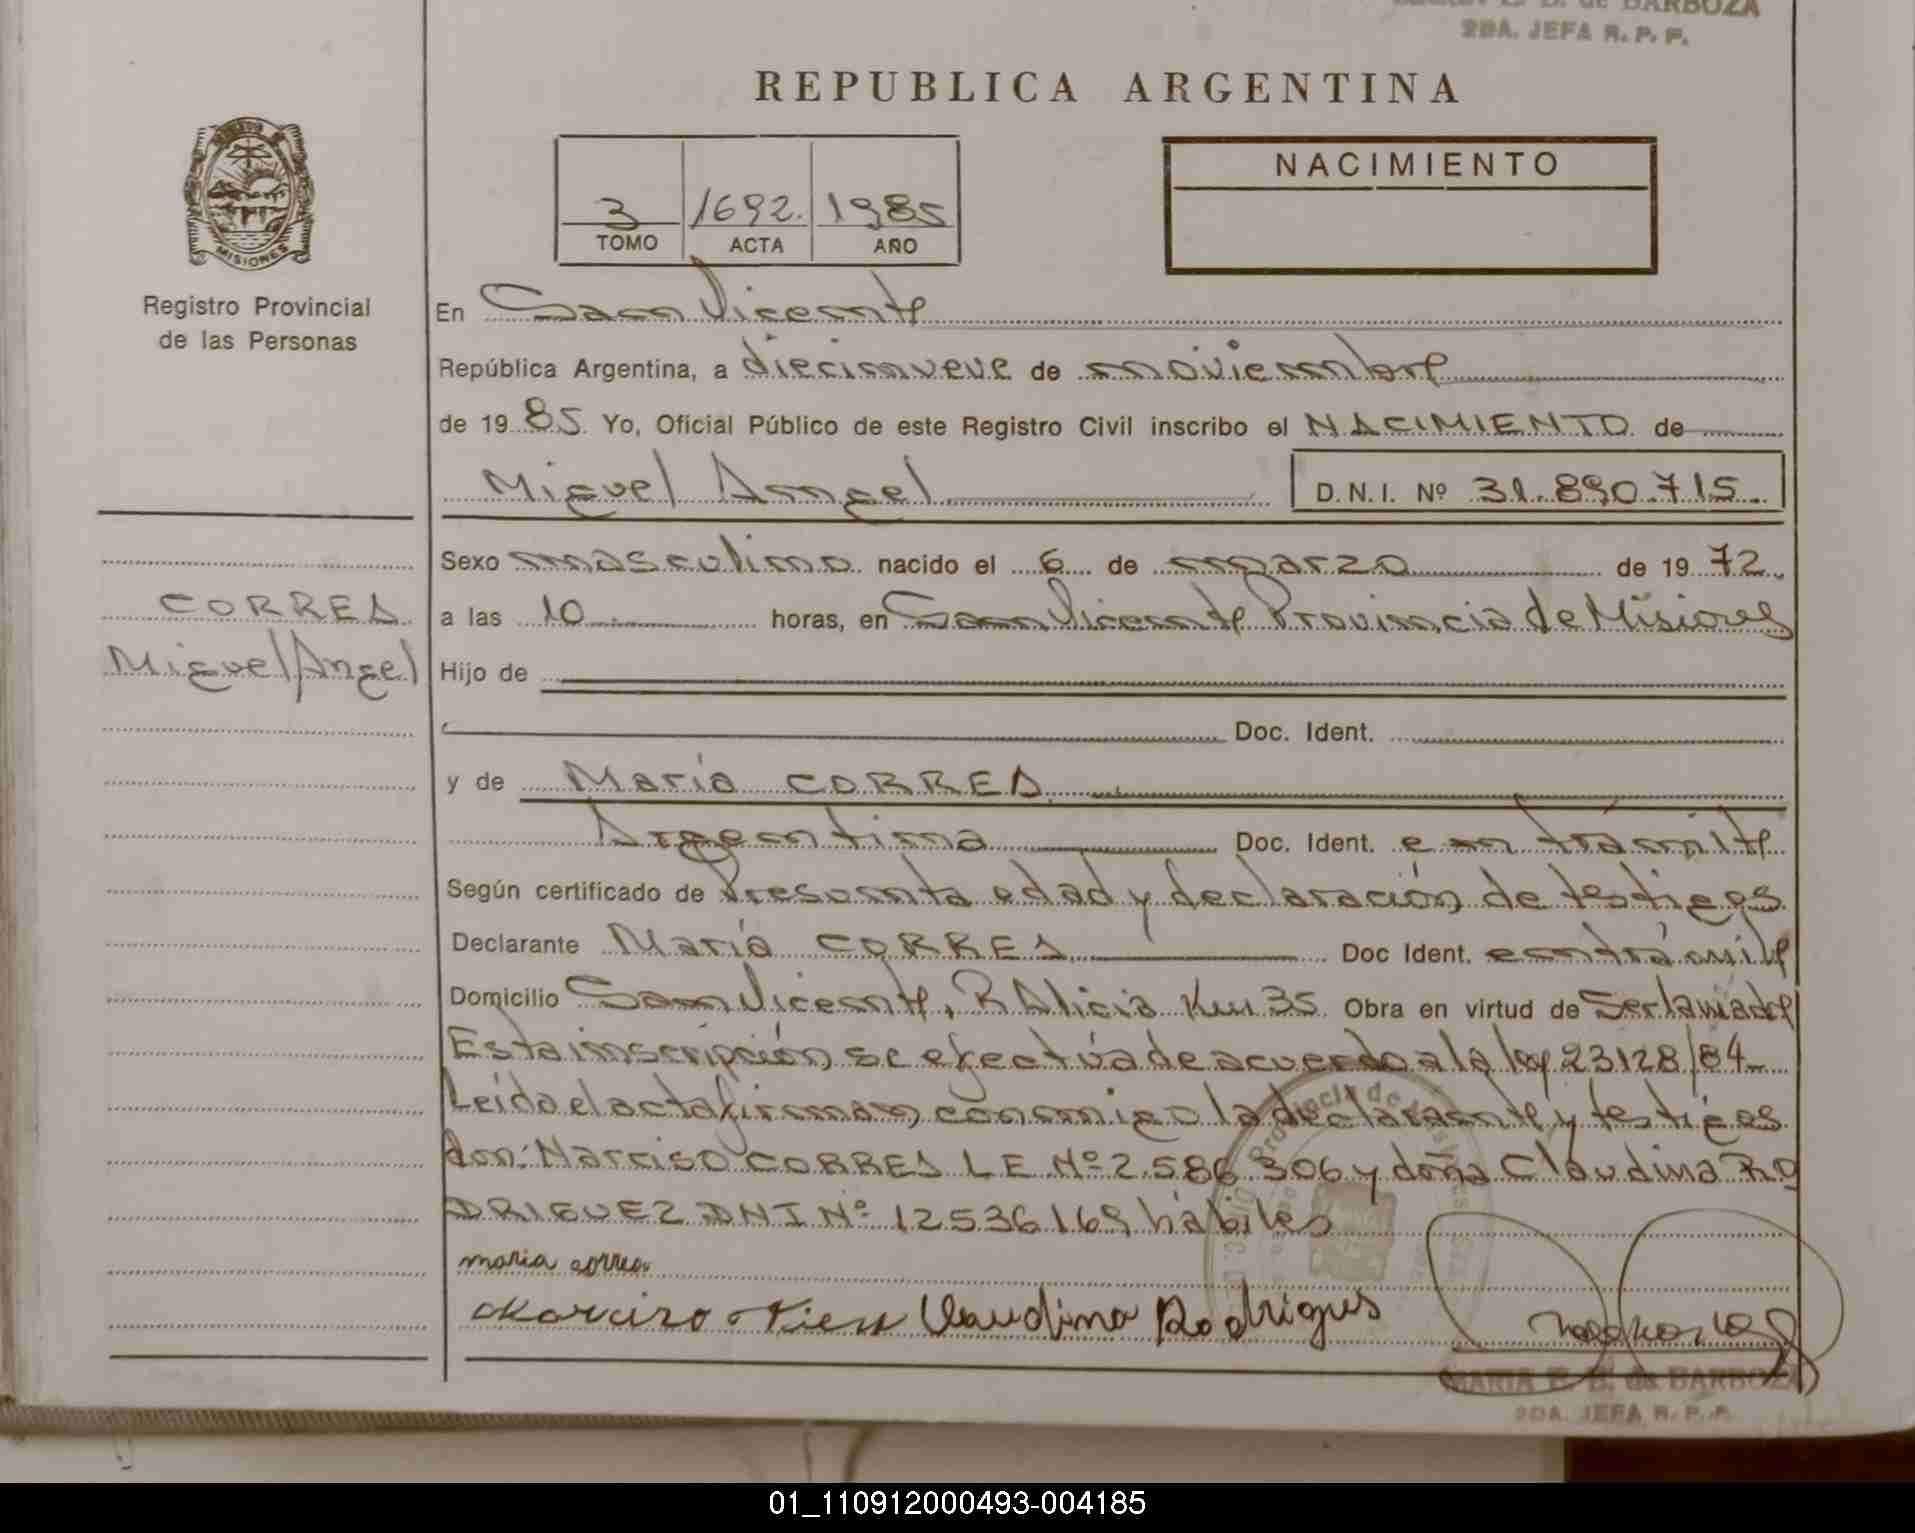 MARIA E. B. de BARBOZA
2DA. JEFA R. P. P.
REPUBLICA ARGENTINA
NACIMIENTO
3 1692. 1985
TOMO ACTA AÑO
MISIONES
Registro Provincial
de las Personas
En San Vicente
República Argentina, a diecinueve de noviembre
de 1985 Yo, Oficial Público de este Registro Civil inscribo el NACIMIENTO de
Miguel Angel D.N.I. Nº 31.890.715
Sexo masculino nacido el 6 de marzo de 1972
CORREA
a las 10 horas, en San Vicente Provincia de Misiones
Miguel Angel
Hijo de
Doc. Ident.
y de María CORREA
Argentina Doc. Ident. en trámite
Según certificado de Presunta edad y declaración de testigos
Declarante María CORREA Doc Ident. en trámite
Domicilio San Vicente, R Alicia Km 35 Obra en virtud de Ser la madre
Esta inscripción se efectúa de acuerdo a la ley 23128/84
Leída el acta firman conmigo la declarante y testigos
don: Narciso CORREA LE Nº 2.586.306 y doña Claudina RO
DRIGUEZ DNI Nº 12536169 hábiles
maria correa
Claudina Rodrigues
MARIA E. B. de BARBOZA
2DA. JEFA R. P. P.
01_110912000493-004185